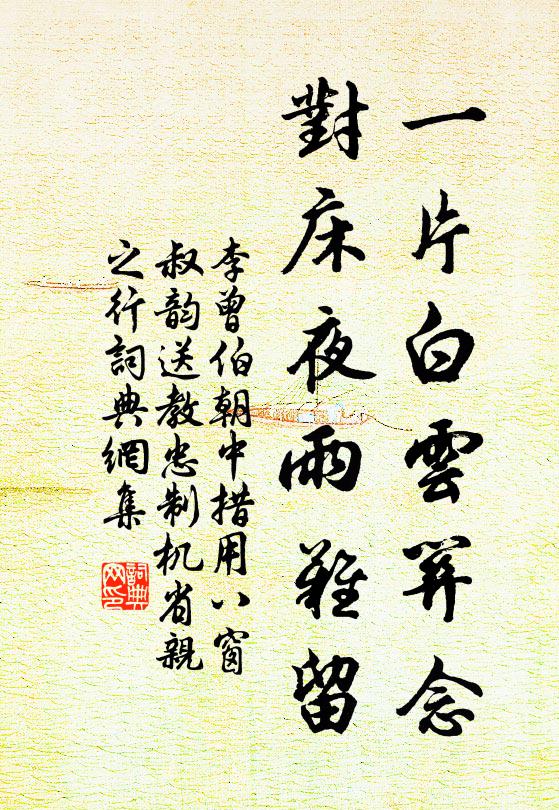 一片白雲關念
對床夜雨難留
李曾伯朝中措用八窗
叔韵送教忠制机省親
之行詞典網集
詞典
网印